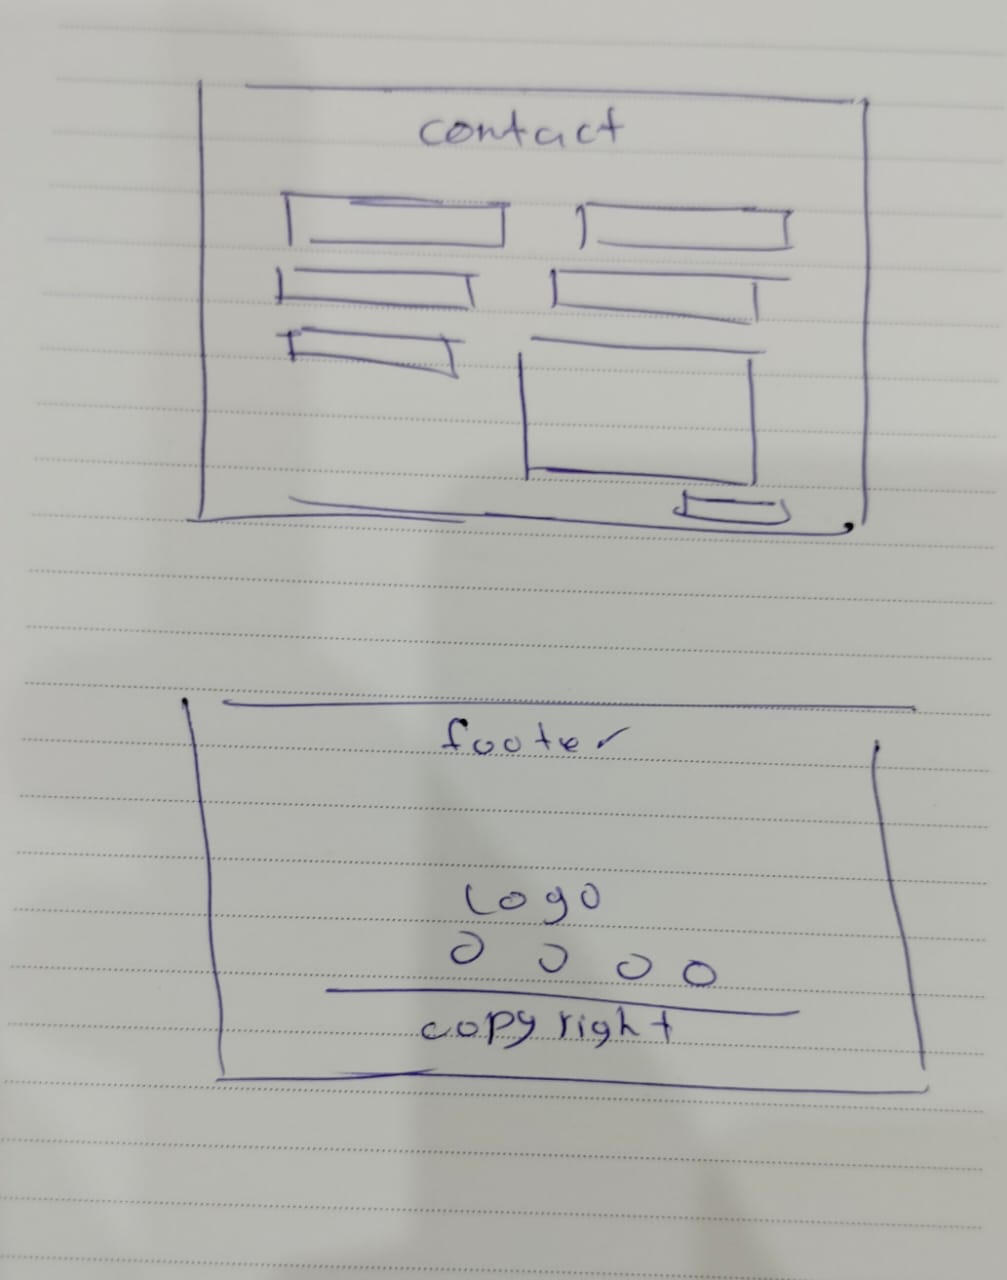 contact
footer
Logo
copy right